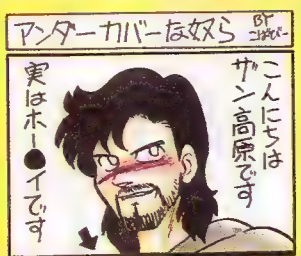 アンダーカバーな奴ら
BY
こんにちは
ザン高原です
実はホー●イです